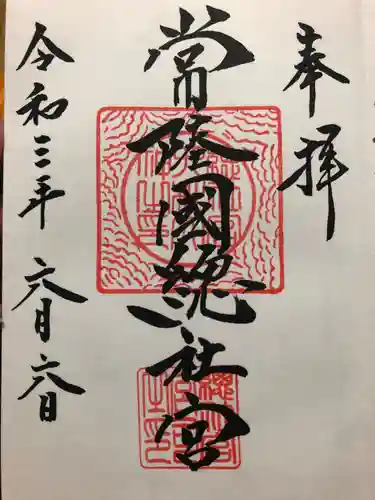 奉拝
常陸國總社宮
令和三年 六月六日